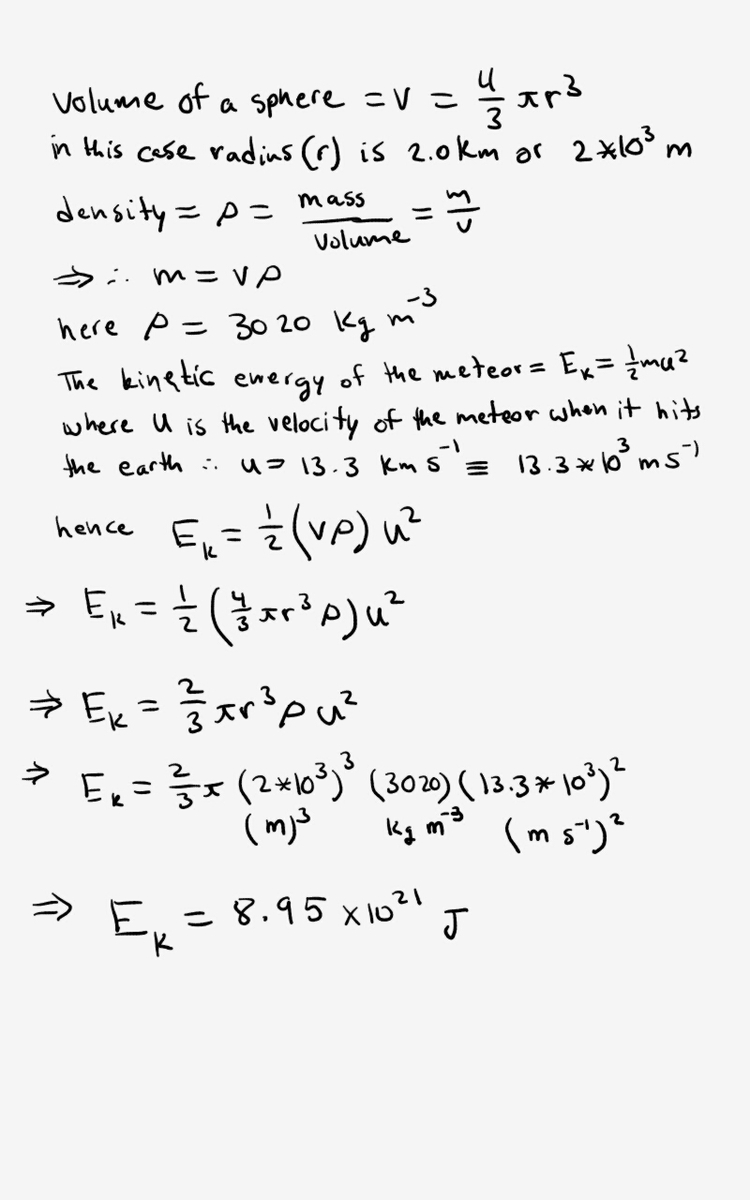 Volume of a sphere = V = 4/3 πr³
in this case radius (r) is 2.0 km or 2*10³ m
density = ρ = mass/volume = m/v
⇒ ∴ m = Vρ
here ρ = 3020 kg m⁻³
The kinetic energy of the meteor = Eₖ = ½mu²
where u is the velocity of the meteor when it hits
the earth ∴ u = 13.3 km s⁻¹ ≡ 13.3*10³ m s⁻¹
hence Eₖ = ½(Vρ) u²
⇒ Eₖ = ½(4/3 πr³ρ)u²
⇒ Eₖ = 2/3 πr³ρu²
⇒ Eₖ = 2/3 π (2*10³)³ (3020) (13.3*10³)²
(m)³ kg m⁻³ (m s⁻¹)²
⇒ Eₖ = 8.95 × 10²¹ J